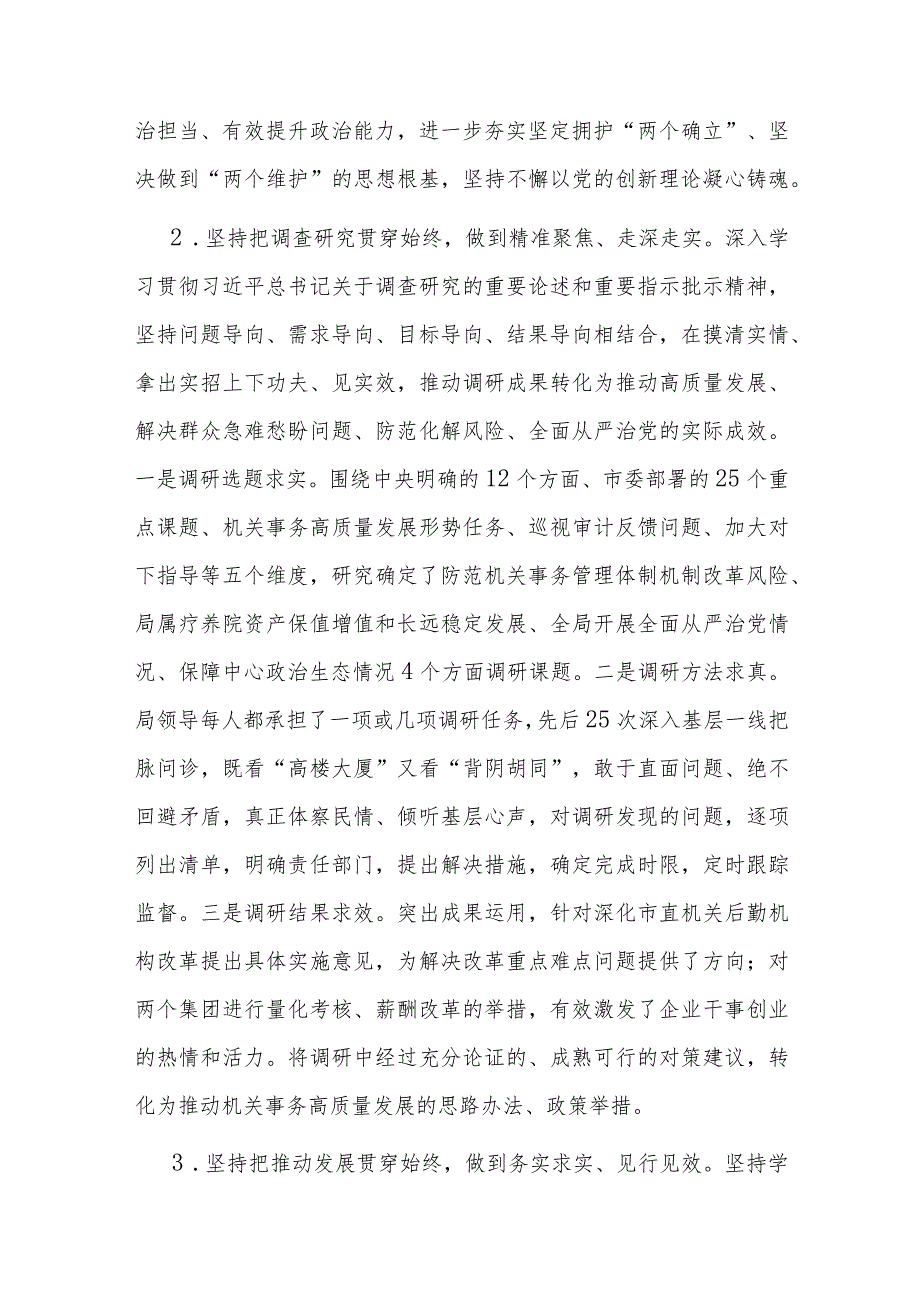 治担当、有效提升政治能力，进一步夯实坚定拥护“两个确立”、坚
决做到“两个维护”的思想根基，坚持不懈以党的创新理论凝心铸魂。
2．坚持把调查研究贯穿始终，做到精准聚焦、走深走实。深入学
习贯彻习近平总书记关于调查研究的重要论述和重要指示批示精神，
坚持问题导向、需求导向、目标导向、结果导向相结合，在摸清实情、
拿出实招上下功夫、见实效，推动调研成果转化为推动高质量发展、
解决群众急难愁盼问题、防范化解风险、全面从严治党的实际成效。
一是调研选题求实。围绕中央明确的12个方面、市委部署的25个重
点课题、机关事务高质量发展形势任务、巡视审计反馈问题、加大对
下指导等五个维度，研究确定了防范机关事务管理体制机制改革风险、
局属疗养院资产保值增值和长远稳定发展、全局开展全面从严治党情
况、保障中心政治生态情况4个方面调研课题。二是调研方法求真。
局领导每人都承担了一项或几项调研任务,先后25次深入基层一线把
脉问诊，既看“高楼大厦”又看“背阴胡同”，敢于直面问题、绝不
回避矛盾，真正体察民情、倾听基层心声，对调研发现的问题，逐项
列出清单，明确责任部门，提出解决措施，确定完成时限，定时跟踪
监督。三是调研结果求效。突出成果运用，针对深化市直机关后勤机
构改革提出具体实施意见，为解决改革重点难点问题提供了方向；对
两个集团进行量化考核、薪酬改革的举措，有效激发了企业干事创业
的热情和活力。将调研中经过充分论证的、成熟可行的对策建议，转
化为推动机关事务高质量发展的思路办法、政策举措。
3．坚持把推动发展贯穿始终，做到务实求实、见行见效。坚持学